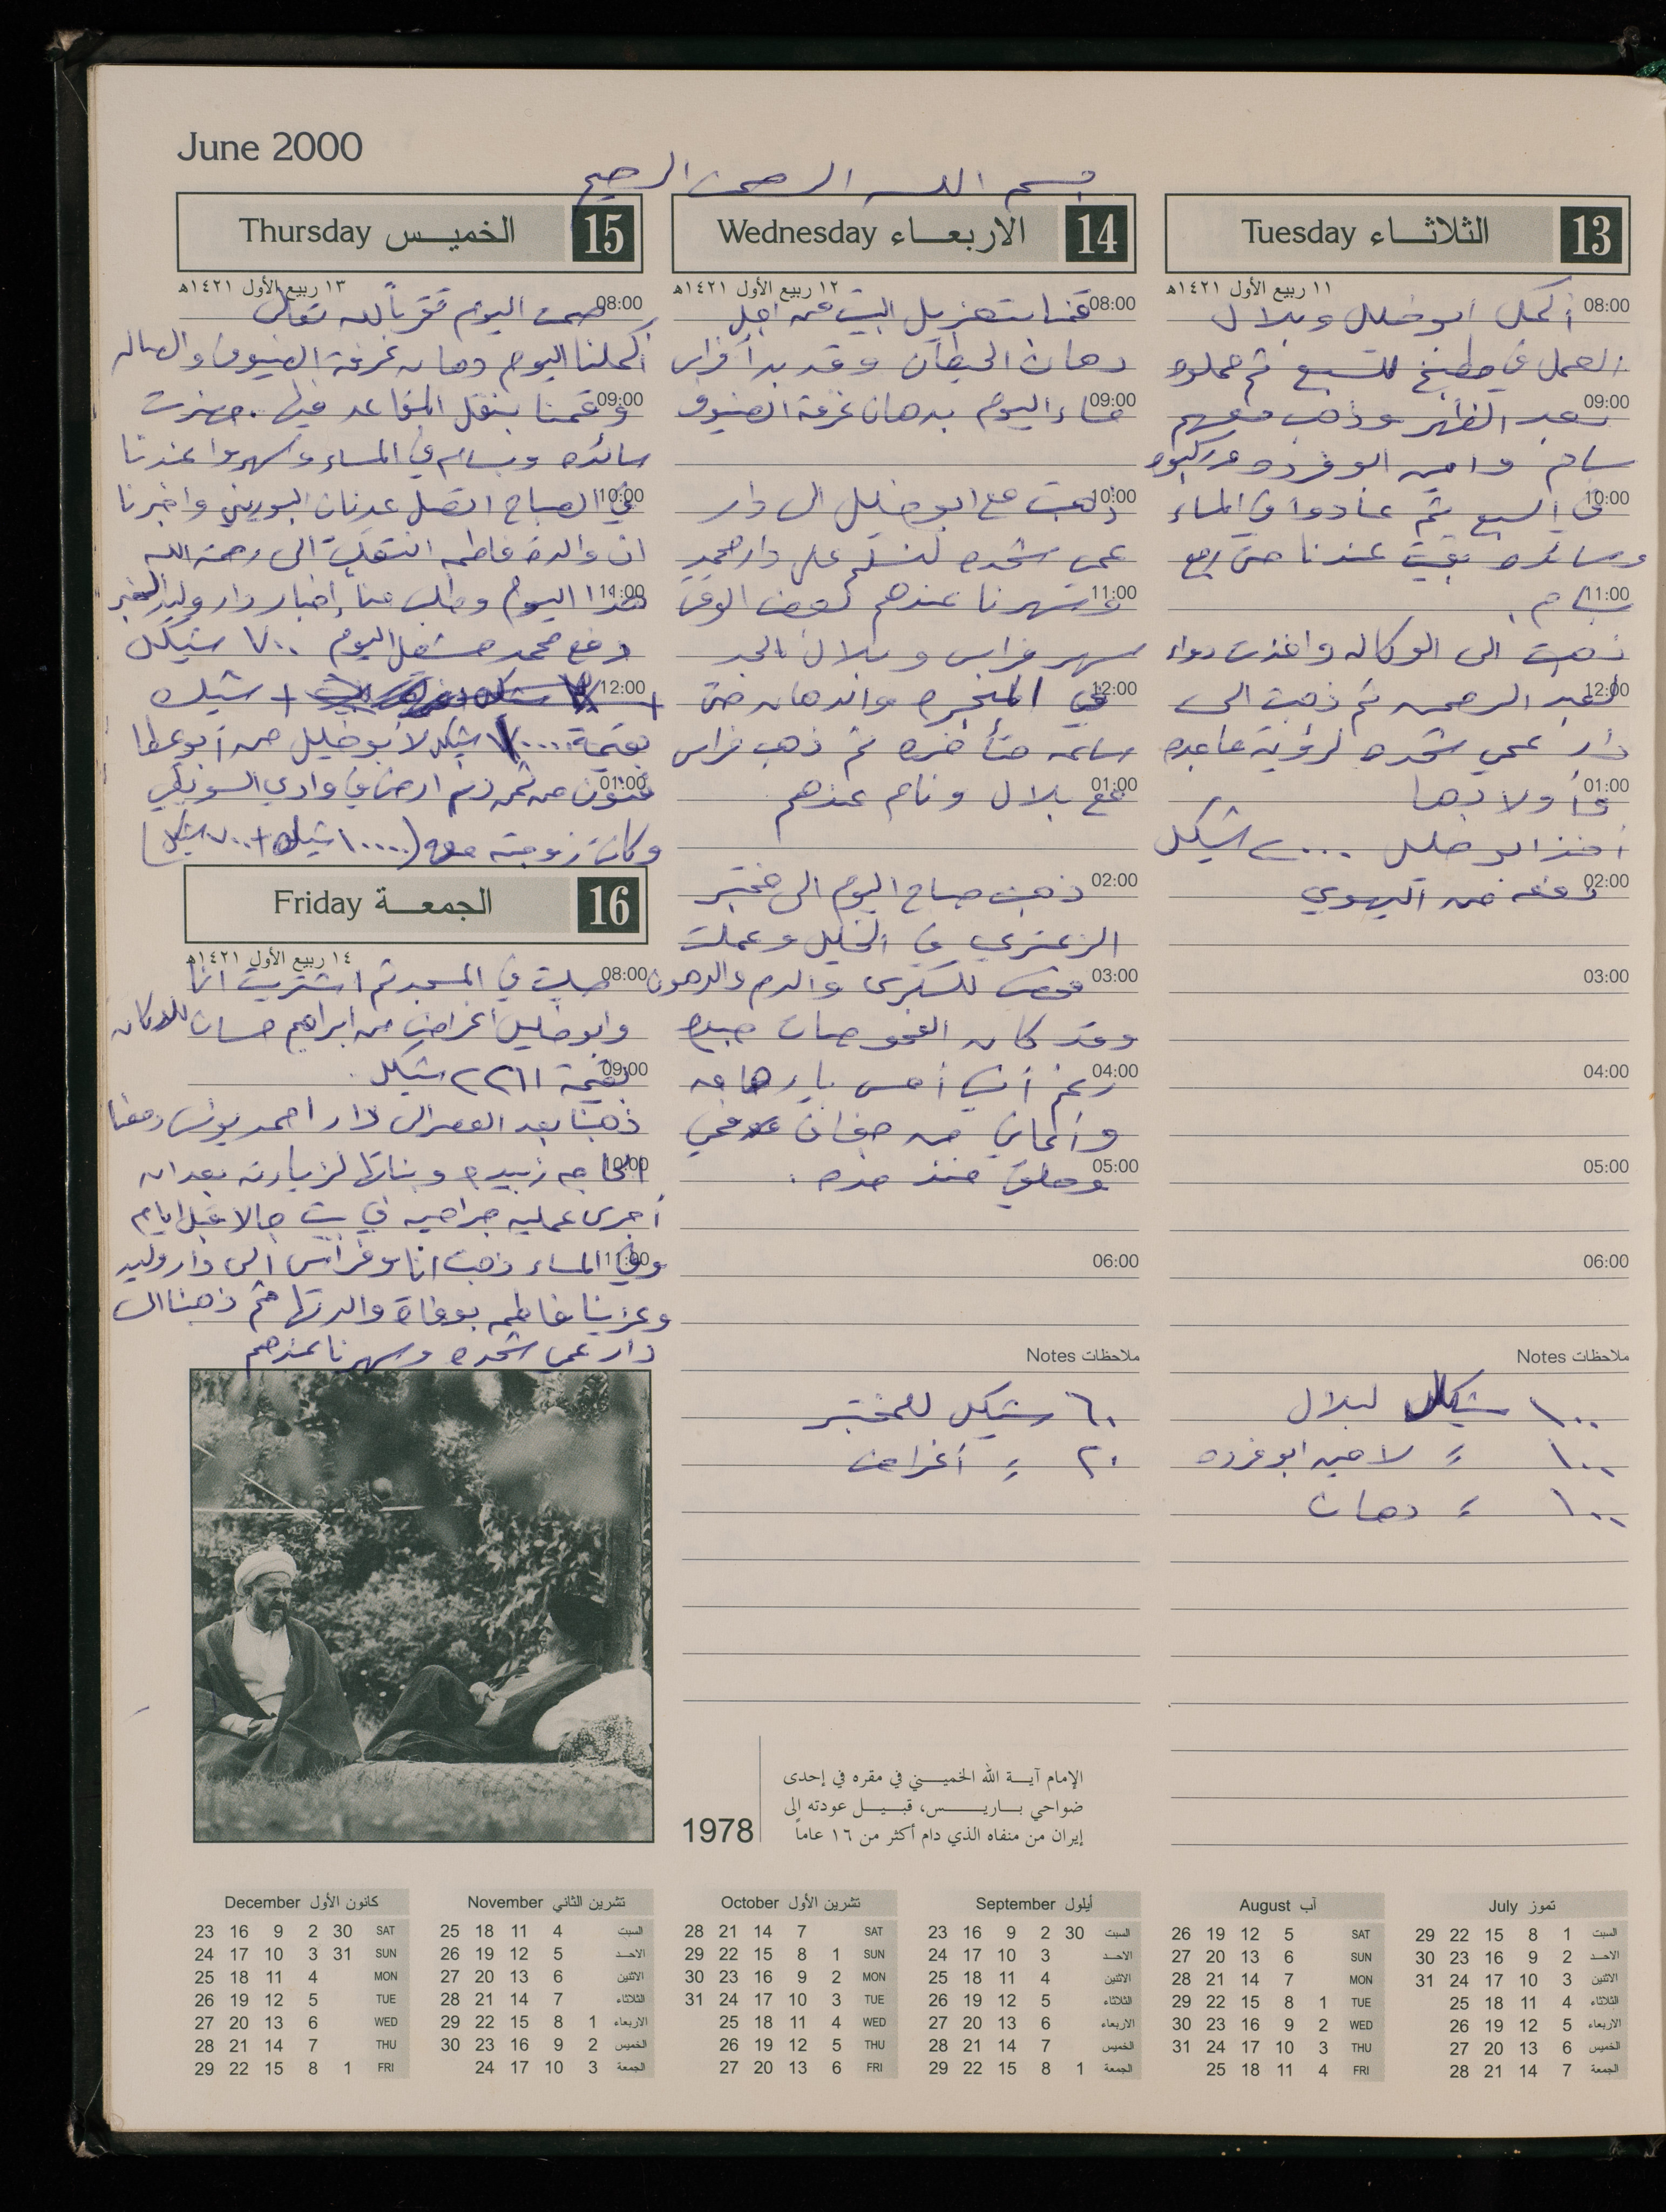 June 2000
بسم الله الرحمن الرحيم
13 الثلاثاء Tuesday
١١ ربيع الأول ١٤٢١هـ
08:00 أكمل أبو خليل وبلال
العمل في مطبخ للسبع ثم حملوه
09:00 بعد الظهر وذهب معهم
بسام وامين ابو فرده وركبوه
10:00 في السبع ثم عادوا في المساء
وسائده بقيت عندنا حتى رجع
11:00 بسام.
ذهبت الى الوكاله واخذت دواء
12:00 لعبد الرحمن ثم ذهبت الى
دار عمي شحده لرؤية ماجده
01:00 وأولادها
أخذ ابو خليل ٢٠٠٠ شيكل
02:00 دفعه من اليهودي
03:00
04:00
05:00
06:00
ملاحظات Notes
١٠٠ شيكل لبلال
١٠٠ = لامين ابو فرده
١٠٠ = دهان
14 الاربعاء Wednesday
١٢ ربيع الأول ١٤٢١هـ
08:00 قمنا بتعزيل البيت من اجل
دهان الحيطان وقد بدأ فراس
09:00 مساء اليوم بدهان غرفة الضيوف
10:00 ذهبت مع ابو خليل الى دار
عمي شحده لنسلم على دار محمد
11:00 وسهرنا عندهم لبعض الوقت
سهر فراس وبلال بالجد
12:00 في المنجره والدهان حتى
ساعه متأخره ثم ذهب فراس
01:00 مع بلال ونام عندهم
02:00 ذهبت صباح اليوم الى مختبر
الزعتري في الخليل وعملت
03:00 فحص للسكري والدم والدهون
وقد كان الفحوصات جيده
04:00 رغم أني أحس بارهاق
وأعاني من جفاف في فمي
05:00 وحلقي منذ مده.
06:00
ملاحظات Notes
٦٠ شيكل للمختبر
٢٠ = أغراض
15 الخميس Thursday
١٣ ربيع الأول ١٤٢١هـ
08:00 صمت اليوم تقرباً لله تعالى
أكملنا اليوم دهان غرفة الضيوف والصاله
09:00 وقمنا بنقل المقاعد فيها. حضرت
سائده وبسام في المساء وسهروا عندنا
10:00 في الصباح اتصل عدنان البوريني واخبرنا
ان والدة فاطمه انتقلت الى رحمة الله
11:00 هذا اليوم وطلب منا إخبار دار وليد الخبر
دفع محمد مشعل اليوم ٧٠٠ شيكل
12:00 + شيك
بقيمة ١٠٠٠٠ شيكل لأبو خليل من أبو عطا
01:00 فنون من ثمن دنم ارض في وادي السويطي
وكانت زوجته معه (١٠٠٠٠ شيك + ٧٠٠ شيكل)
16 الجمعة Friday
١٤ ربيع الأول ١٤٢١هـ
08:00 صليت في المسجد ثم اشتريت انا
وابو خليل أغراض من ابراهيم حسان للدكان
09:00 بقيمة ٢٢٦١ شيكل.
ذهبنا بعد العصر الى دار احمد يونس ومعنا
10:00 الحاجه زبيده وبناتها لزيارته بعد ان
أجرى عمليه جراحيه في بيت جالا قبل ايام
11:00 وفي المساء ذهبت انا وفراس الى دار وليد
وعزينا فاطمه بوفاة والدتها ثم ذهبنا الى
دار عمي شحده وسهرنا عندهم
1978
الإمام آية الله الخميني في مقره في إحدى
ضواحي باريس، قبيل عودته إلى
إيران من منفاه الذي دام أكثر من ١٦ عاماً
تموز July
السبت 1 8 15 22 29
الاحد 2 9 16 23 30
الاثنين 3 10 17 24 31
الثلاثاء 4 11 18 25
الاربعاء 5 12 19 26
الخميس 6 13 20 27
الجمعة 7 14 21 28
آب August
SAT 5 12 19 26
SUN 6 13 20 27
MON 7 14 21 28
TUE 1 8 15 22 29
WED 2 9 16 23 30
THU 3 10 17 24 31
FRI 4 11 18 25
أيلول September
السبت 30 2 9 16 23
الاحد 3 10 17 24
الاثنين 4 11 18 25
الثلاثاء 5 12 19 26
الاربعاء 6 13 20 27
الخميس 7 14 21 28
الجمعة 1 8 15 22 29
تشرين الأول October
SAT 7 14 21 28
SUN 1 8 15 22 29
MON 2 9 16 23 30
TUE 3 10 17 24 31
WED 4 11 18 25
THU 5 12 19 26
FRI 6 13 20 27
تشرين الثاني November
السبت 4 11 18 25
الاحد 5 12 19 26
الاثنين 6 13 20 27
الثلاثاء 7 14 21 28
الاربعاء 1 8 15 22 29
الخميس 2 9 16 23 30
الجمعة 3 10 17 24
كانون الأول December
SAT 30 2 9 16 23
SUN 31 3 10 17 24
MON 4 11 18 25
TUE 5 12 19 26
WED 6 13 20 27
THU 7 14 21 28
FRI 1 8 15 22 29